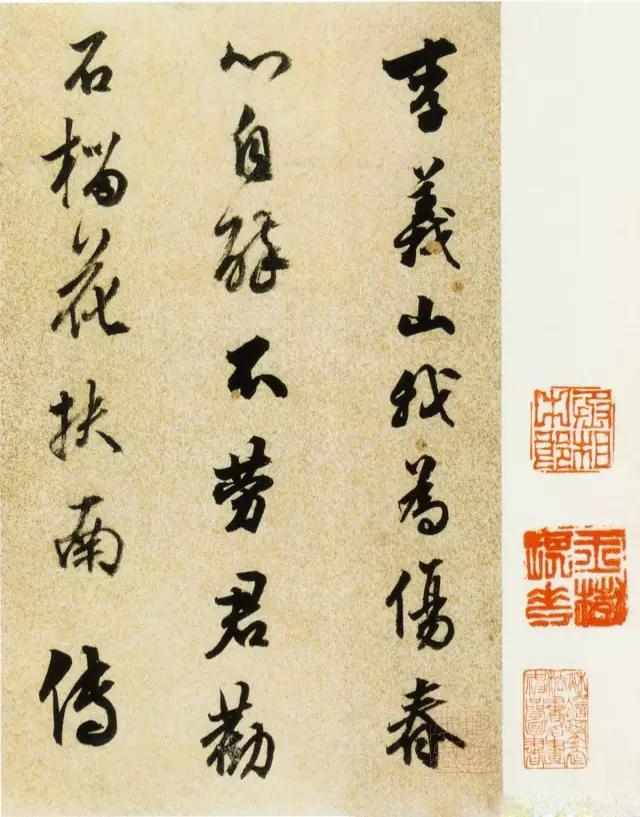 李義山我為傷春
心自醉不勞君勸
石榴花扶南傳